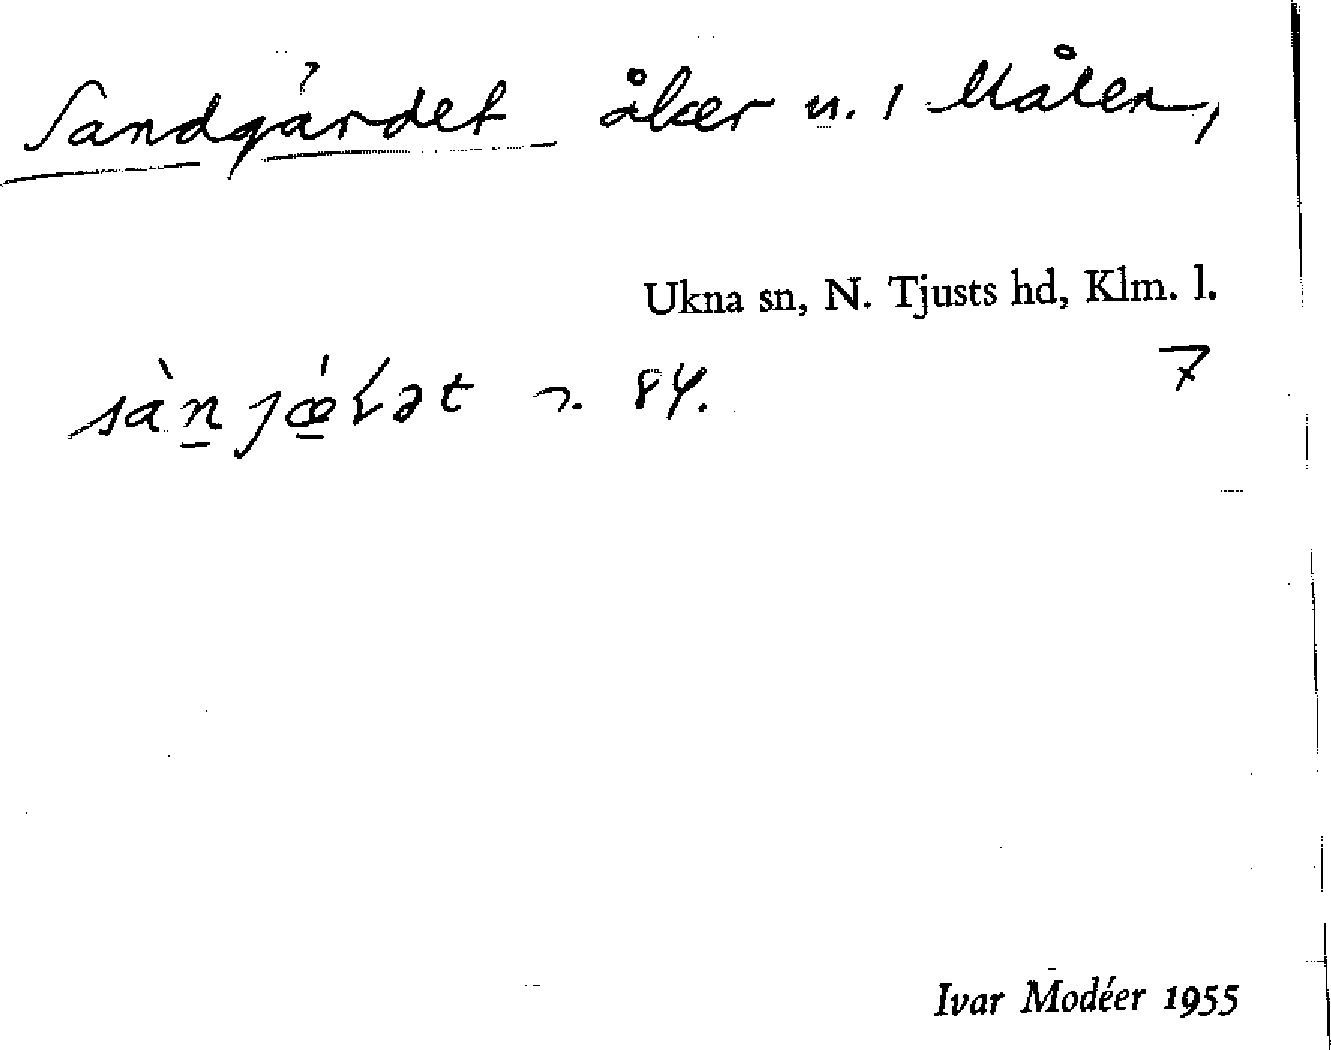 Sandgärdet åker n. 1 Målen,
Ukna sn, N. Tjusts hd, Klm. l.
sàn̲jǽ̲ɽət n. 84. 7
Ivar Modéer 1955